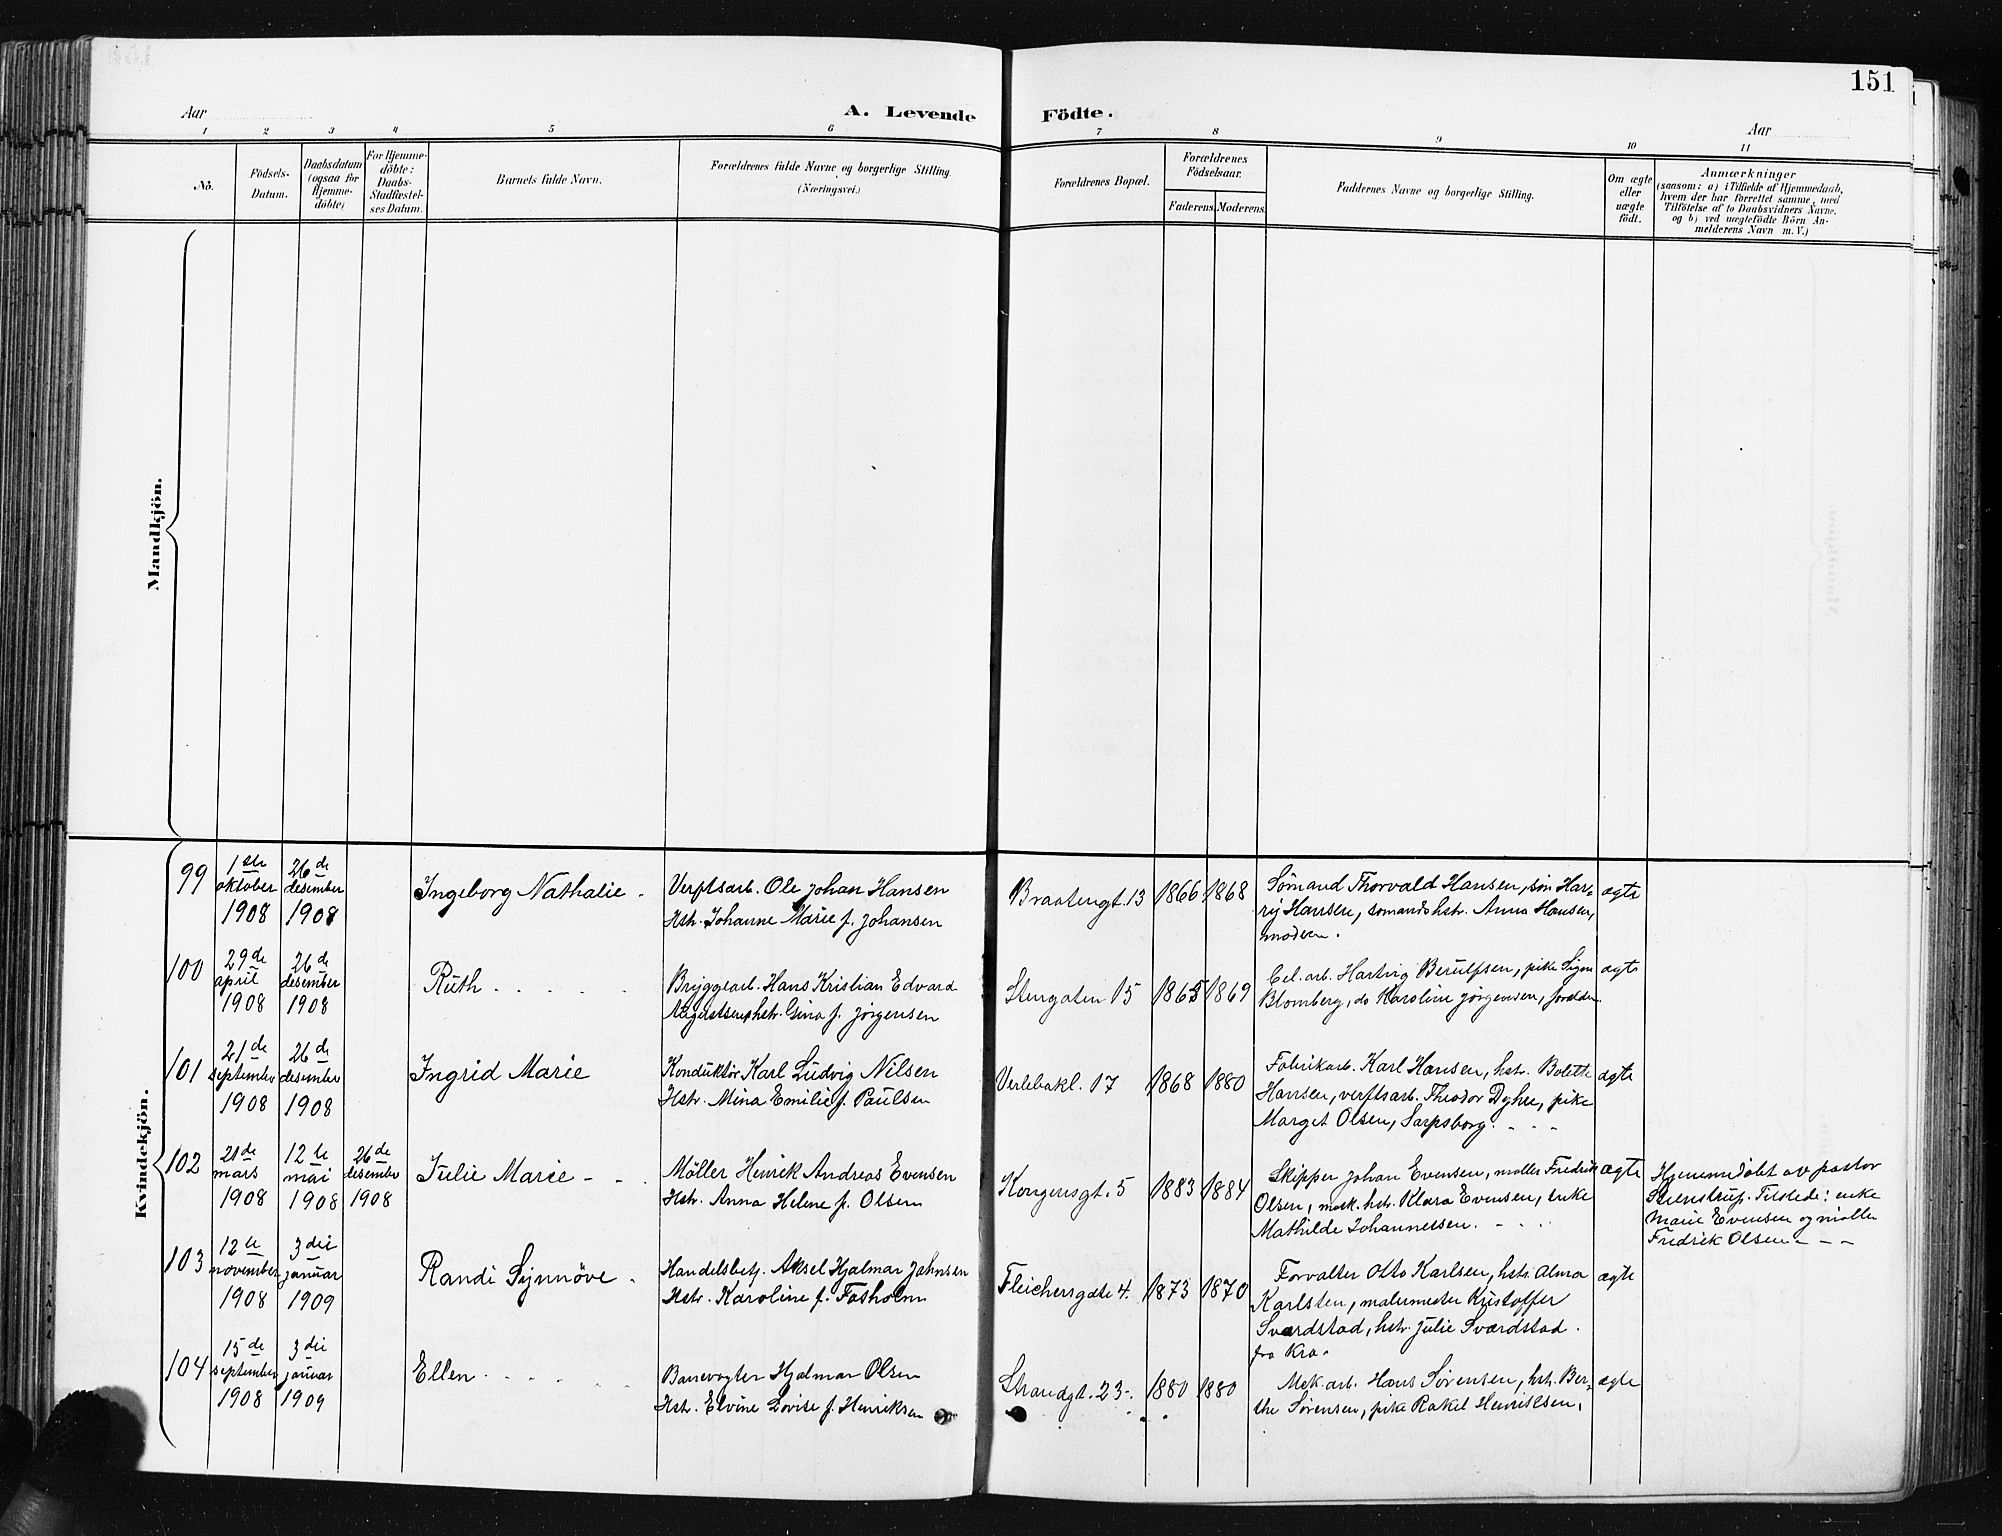 151
Aar
A. Levende Födte.
Aar
1 2 3 4 5 6 7 8 9 10 11
No.
Födsels-
Datum.
Daabsdatum
(ogsaa för
Hjemme-
döbte)
For Hjemme-
döbte:
Daabs-
Stadfæstel-
ses Datum.
Barnets fulde Navn.
Forældrenes fulde Navne og borgerlige Stilling.
(Næringsvei.)
Forældrenes Bopæl.
Forældrenes
Födselsaar.
Faderens. Moderens.
Faddernes Navne og borgerlige Stilling.
Om ægte
eller
uægte
födt.
Anmærkninger
(saasom: a) i Tilfælde af Hjemmedaab,
hvem der har forrettet samme, med
Tilföielse af to Daabsvidners Navne.
og b) ved uægtefödte Börn An-
melderens Navn m. V.)
Mandkjön.
Kvindekjön.
99
1ste
oktober
1908
26de
desember
1908
Ingeborg Nathalie
Verftsarb. Ole Johan Hansen
Hstr. Johanne Marie f. Johansen
Braatengt. 13
1866
1868
Sömand Thorvald Hansen, sön Har-
ry Hansen, sömandshstr. Anna Hansen,
moderen.
ægte
100
29de
april
1908
26de
desember
1908
Ruth
Bryggearb. Hans Kristian Edvard
hstr. Gina f. Jörgensen
Stengaten 15
1865
1869
Cel. arb. Hartvig Berulfsen, pike Signe
Blomberg, do Karoline Jörgensen,
ægte
101
21de
september
1908
26de
desember
1908
Ingrid Marie
Konduktör Karl Ludvig Nilsen
Hstr. Mina Emilie f. Paulsen
17
1868
1880
Fabrikarb. Karl Hansen, hstr. Bolette
Hansen, verftsarb. Theodor Dyhre, pike
Marget Olsen, Sarpsborg.
ægte
102
21de
mars
1908
12te
mai
1908
26de
desember
1908
Julie Marie
Möller Henrik Andreas Evensen
Hstr. Anna Helene f. Olsen
Kongensgt. 5
1883
1884
Skipper Johan Evensen, möller Fredrik
Olsen, mask. hstr. Klara Evensen, enke
Mathilde Johannessen.
ægte
Hjemmedöbt av pastor
Stenstrup. Tilstede: enke
Marie Evensen og möller
Fredrik Olsen
103
12te
november
1908
3die
januar
1909
Randi Synnöve
Handelsbetj. Aksel Hjalmar Johnsen
Hstr. Karoline f. Fosholm
Fleichersgate 4.
1873
1870
Forvalter Otto Karlsen, hstr. Alma
Karlsten, malermester Kristoffer
Sværdstad, hstr. Julie Sværdstad.
fra Kra.
ægte
104
15de
september
1908
3die
januar
1909
Ellen
Banevogter Hjalmar Olsen
Hstr. Elvine Lovise f. Henriksen
Strandgt. 23
1880
1880
Mek. arb. Hans Sörensen, hstr. Ber-
the Sörensen, pike Rakel Henriksen,
ægte